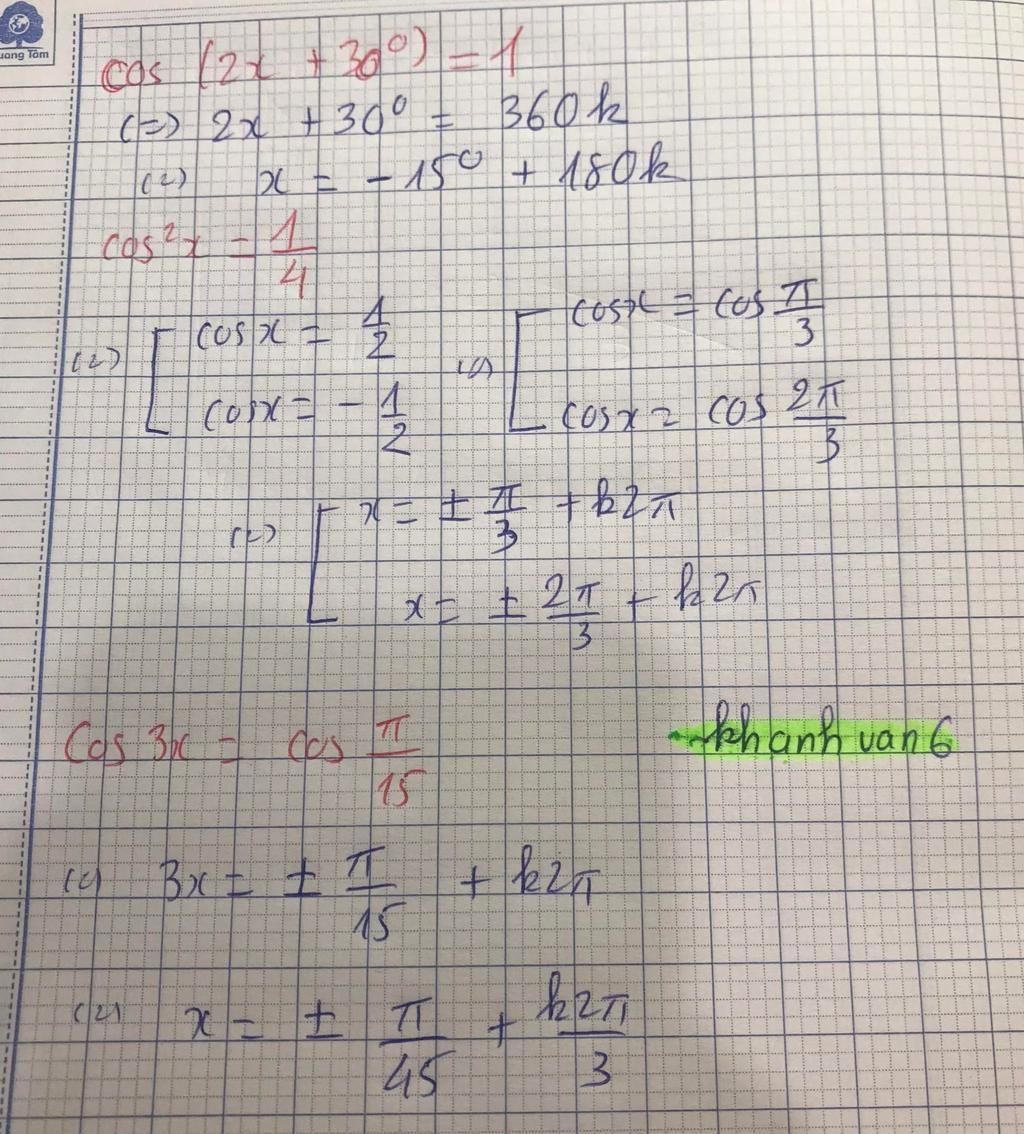 uang Tâm
cos (2x + 30⁰) = 1
(=) 2x + 30⁰ = 360k
(=) x = -15⁰ + 180k
cos²x = 1/4
(=) [ cosx = 1/2 (=) [ cosx = cos π/3
cosx = -1/2 cosx = cos 2π/3
(=) [ x = ± π/3 + k2π
x = ± 2π/3 + k2π
Cos 3x = cos π/15
khanhvan6
(=) 3x = ± π/15 + k2π
(=) x = ± π/45 + k2π/3